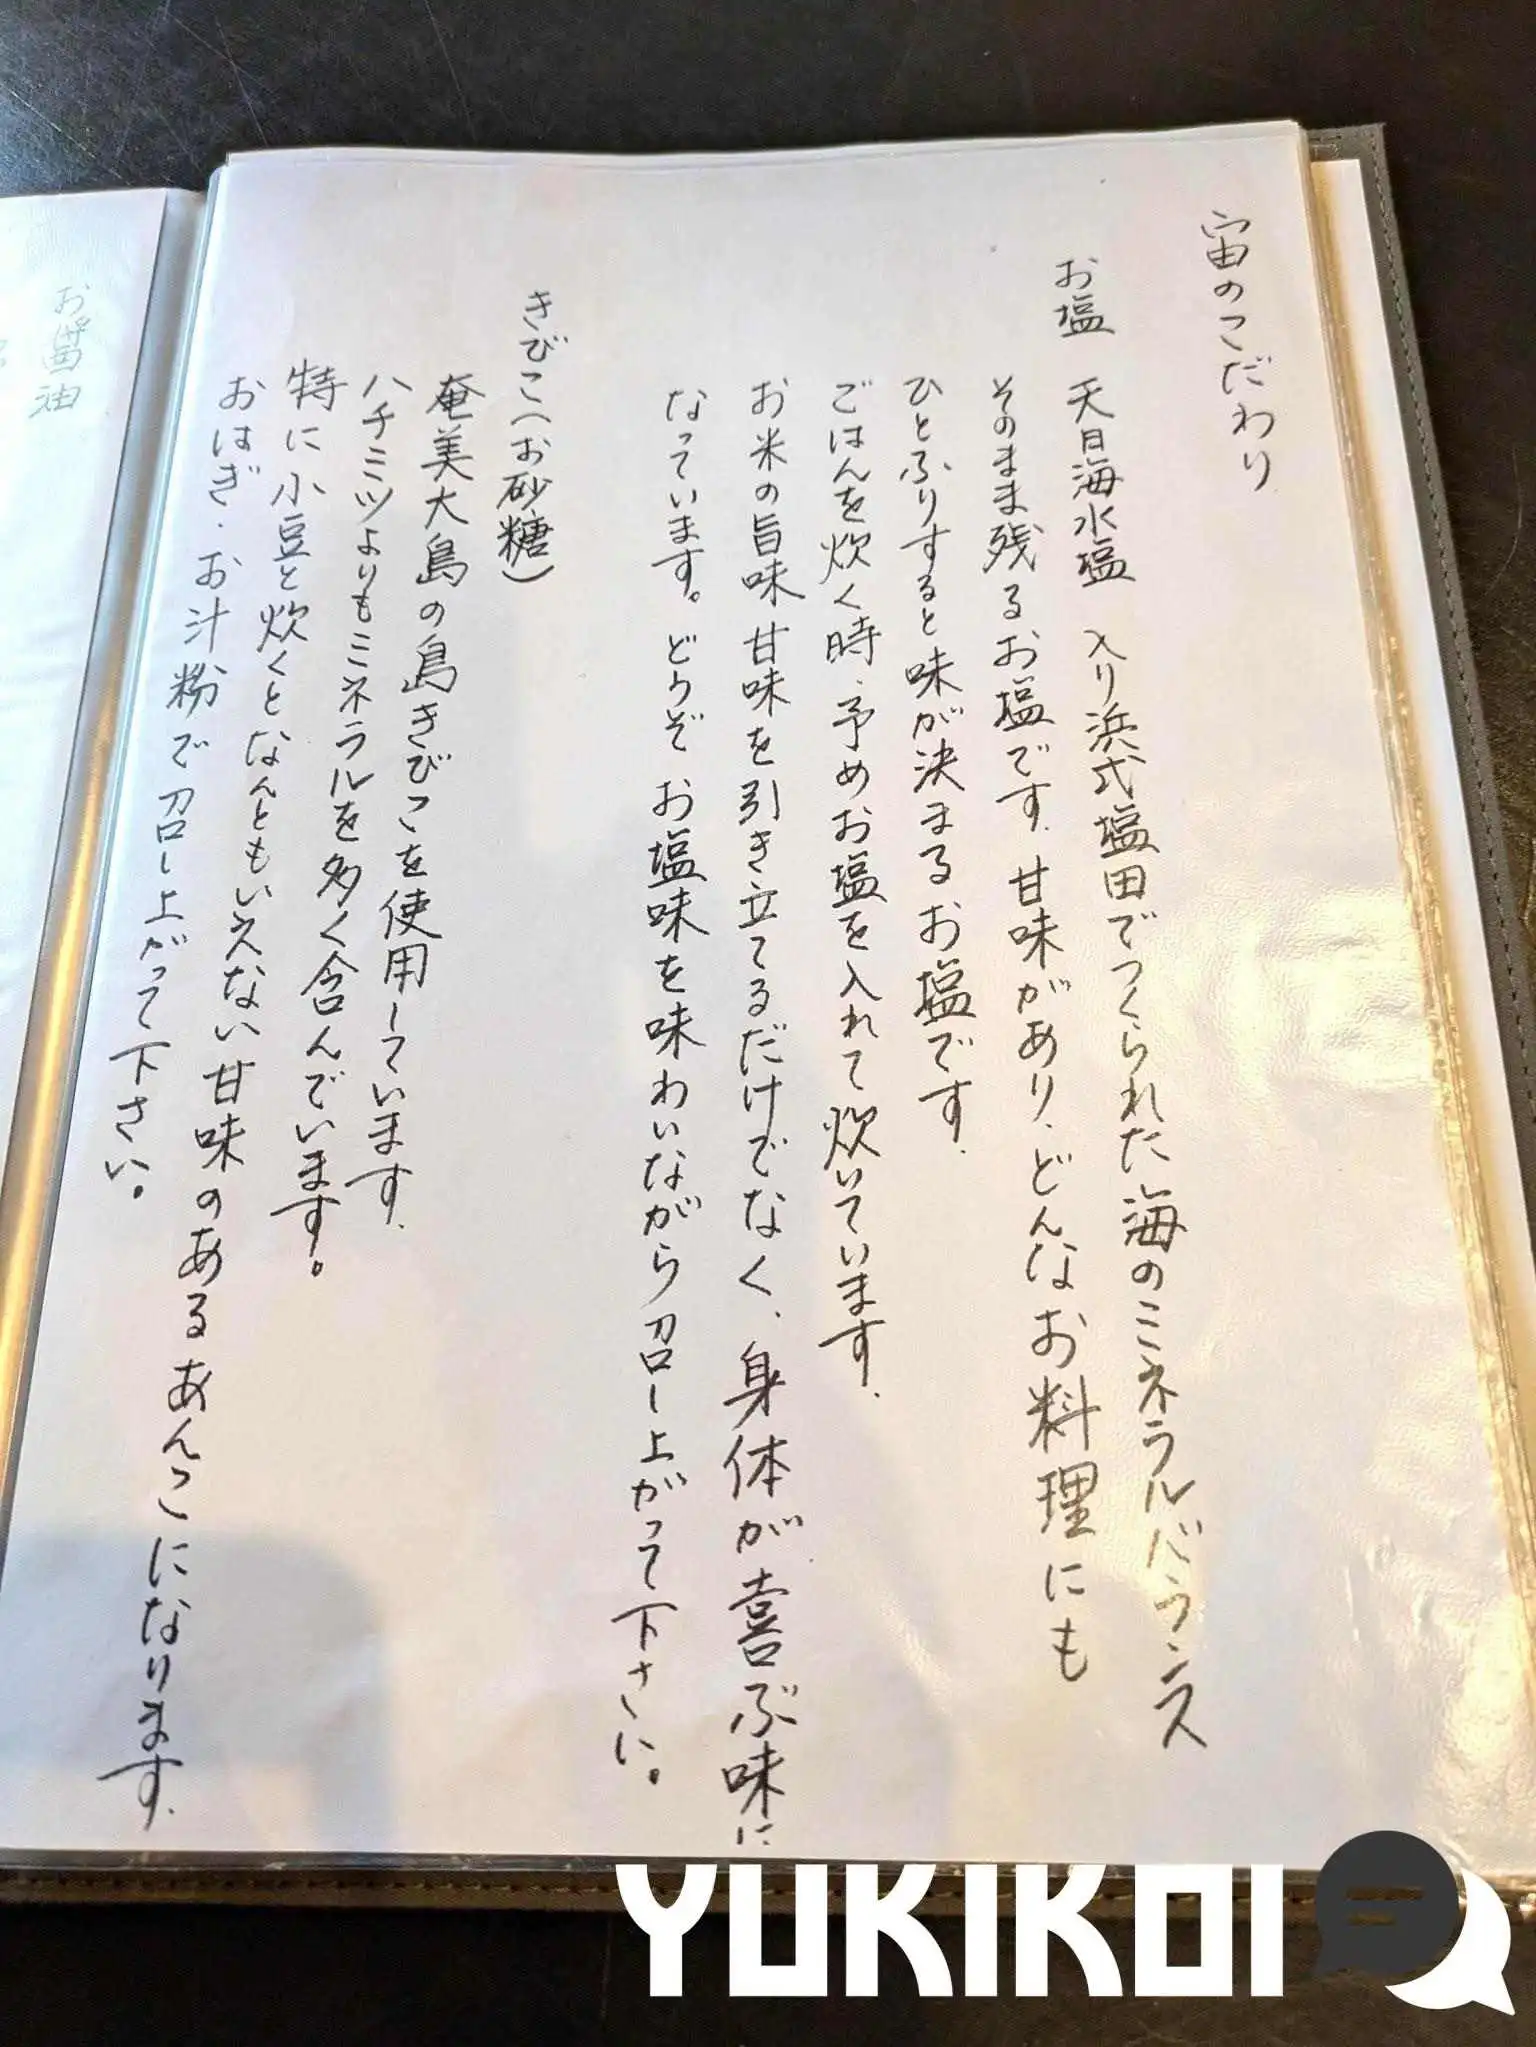 宙のこだわり
お塩 天日海水塩 入り浜式塩田でつくられた海のミネラルバランス
そのまま残るお塩です。甘味があり、どんなお料理にも
ひとふりすると味が決まるお塩です。
ごはんを炊く時、予めお塩を入れて炊いています。
お米の旨味 甘味を引き立てるだけでなく、身体が喜ぶ味に
なっています。どうぞ お塩味を味わいながら召し上がって下さい。
きびこ(お砂糖)
奄美大島の島きびこを使用しています。
ハチミツよりもミネラルを多く含んでいます。
特に小豆と炊くとなんともいえない甘味のあるあんこになります。
おはぎ・お汁粉で召し上がって下さい。
お醤油
YUKIKOI